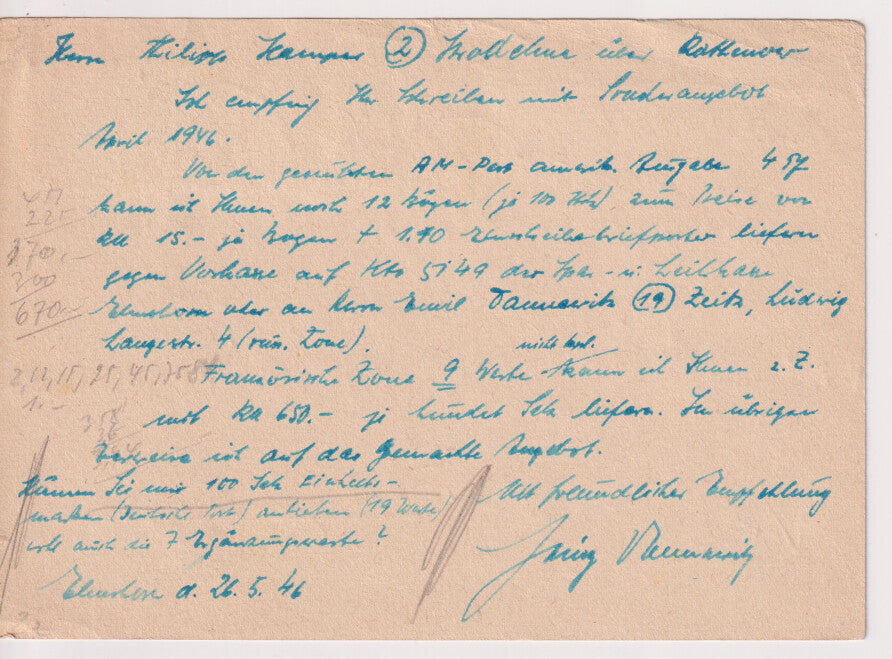 Herrn Philipp Kamper (2) Strodehne über Rathenow
Ich empfing Ihr Schreiben mit Sonderangebot
April 1946.
Von den gesuchten AM-Post amerik. Ausgabe 4 Pf
kann ich Ihnen noch 12 Bögen (je 100 Stk) zum Preise von
RM 15.- je Bogen + 1.40 Einschreibebriefporto liefern
gegen Vorkasse auf Kto 5149 der Spar- u. Leihkasse
Elmshorn oder an Herrn Emil Dannewitz (19) Zeitz, Ludwig
Langestr. 4 (russ. Zone).
nicht
Französische Zone 9 Werte kann ich Ihnen z. Z.
mit RM 650.- je hundert Satz liefern. Im übrigen
verweise ich auf das gemachte Angebot.
Können Sie mir 100 Satz Einheits-
marken (Deutsche Post) anbieten (19 Werte)
evtl auch die 7 Ergänzungswerte?
Mit freundlicher Empfehlung
Dannewitz
Elmshorn d. 26. 5. 46
225
170,-
300
670,-
2, 12, 15, 25, 45, 75
1.-